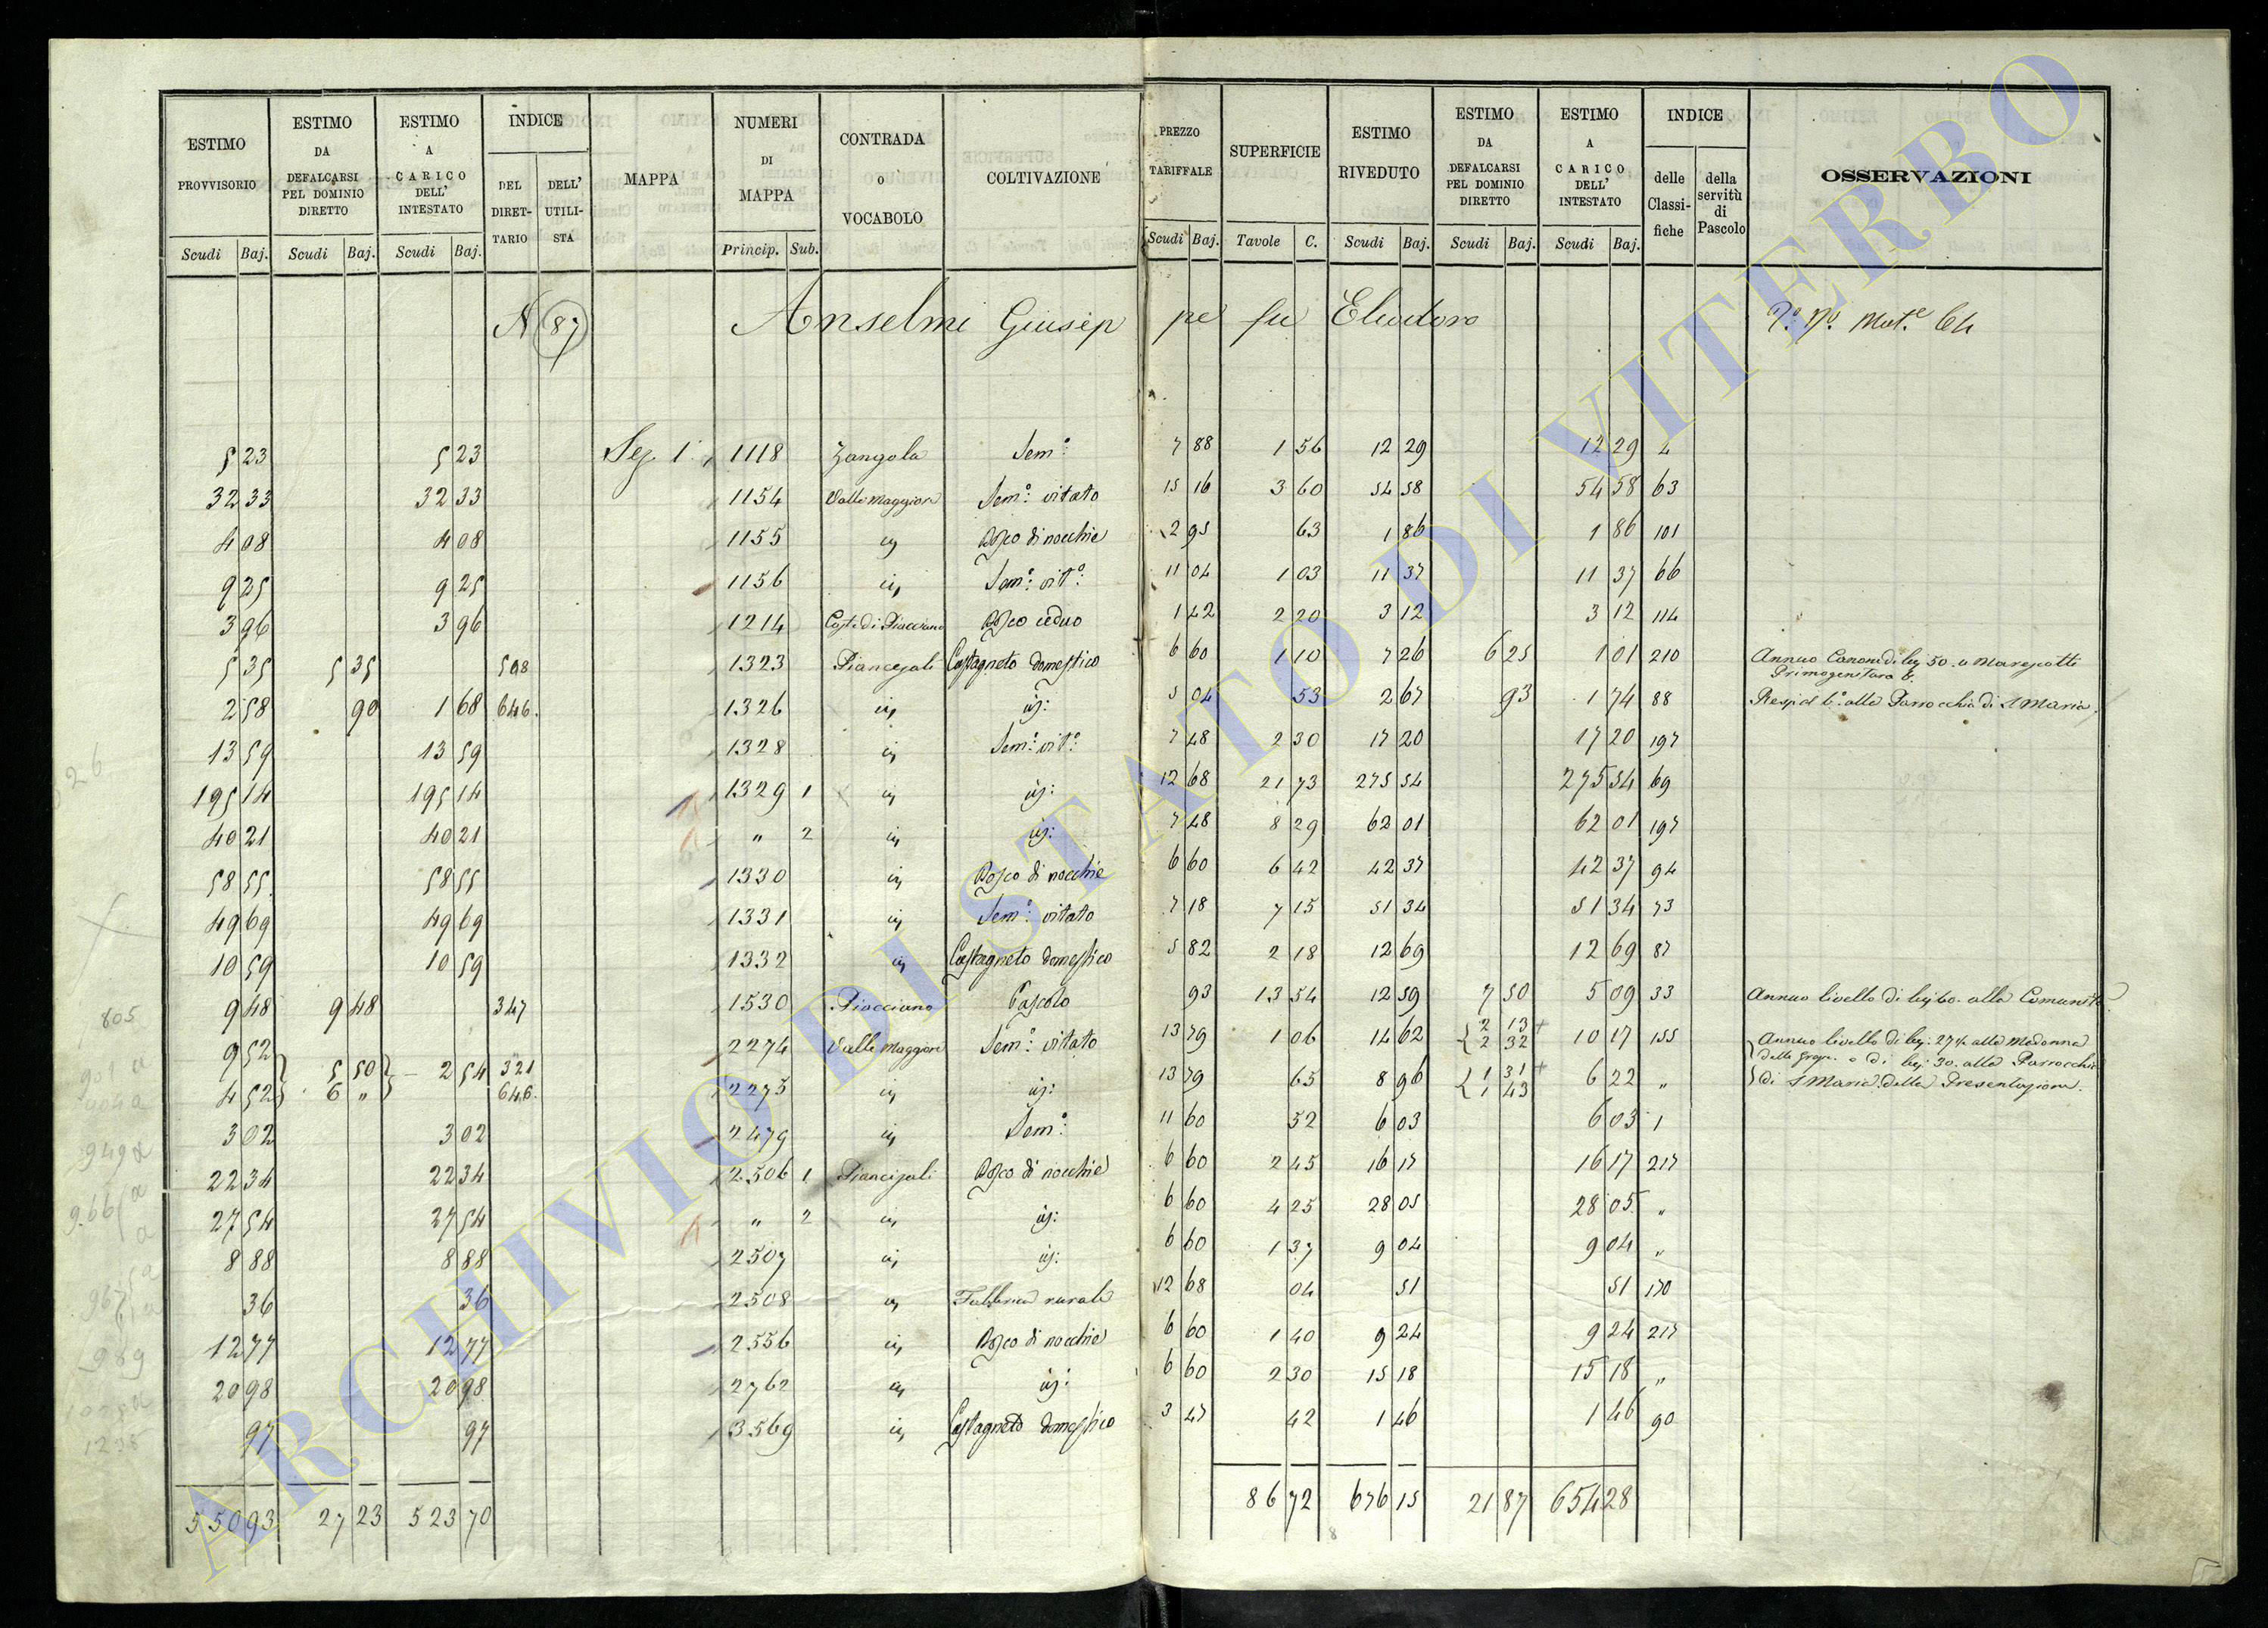 ESTIMO PROVVISORIO | ESTIMO DA DEFALCARSI PEL DOMINIO DIRETTO | ESTIMO A CARICO DELL' INTESTATO | INDICE DEL DIRETTARIO | DELL' UTILISTA | MAPPA | NUMERI DI MAPPA | CONTRADA O VOCABOLO | COLTIVAZIONE | PREZZO TARIFFALE | SUPERFICIE | ESTIMO RIVEDUTO | ESTIMO DA DEFALCARSI PEL DOMINIO DIRETTO | ESTIMO A CARICO DELL' INTESTATO | INDICE delle Classifiche | della servitù di Pascolo | OSSERVAZIONI
Scudi Baj. | Scudi Baj. | Scudi Baj. | Princip. Sub. | Scudi Baj. | Tavole C. | Scudi Baj. | Scudi Baj. | Scudi Baj.
N 87 Anselmi Giuseppe fu Eliodoro Mut.e 64
5 23 | 5 23 | Sez. 1 | 1118 | Zangola | Sem.o | 7 88 | 1 56 | 12 29 | 12 29 | 4
32 33 | 32 33 | 1154 | Valle Maggiore | Sem.o vitato | 15 16 | 3 60 | 54 58 | 54 58 | 63
4 08 | 4 08 | 1155 | id | Bosco di nocchie | 2 95 | 63 | 1 86 | 1 86 | 101
9 25 | 9 25 | 1156 | id | Sem.o vit.o | 11 04 | 1 03 | 11 37 | 11 37 | 66
3 96 | 3 96 | 1214 | Coste di Piacciano | Bosco ceduo | 1 42 | 2 20 | 3 12 | 3 12 | 114
5 35 | 5 35 | 508 | 1323 | Piancejoli | Castagneto domestico | 6 60 | 1 10 | 7 26 | 6 25 | 1 01 | 210 | Annuo Canone di bej 50. a Marescotti Primogenitura
2 58 | 90 | 1 68 | 646. | 1326 | id | id: | 5 04 | 53 | 2 67 | 93 | 1 74 | 88 | Resp.a b.o alla Parrocchia di S Maria
13 59 | 13 59 | 1328 | id | Sem.o vit.o | 7 48 | 2 30 | 17 20 | 17 20 | 197
195 14 | 195 14 | 1329 1 | id | id: | 12 68 | 21 73 | 275 54 | 275 54 | 69
40 21 | 40 21 | " 2 | id | id: | 7 48 | 8 29 | 62 01 | 62 01 | 197
58 55 | 58 55 | 1330 | id | Bosco di nocchie | 6 60 | 6 42 | 42 37 | 42 37 | 94
49 69 | 49 69 | 1331 | id | Sem.o vitato | 7 18 | 7 15 | 51 34 | 51 34 | 73
10 59 | 10 59 | 1332 | id | Castagneto domestico | 5 82 | 2 18 | 12 69 | 12 69 | 87
9 48 | 9 48 | 347 | 1530 | Piacciano | Pascolo | 93 | 13 54 | 12 59 | 7 50 | 5 09 | 33 | Annuo livello di bej 60. alla Comunità
9 52 | 5 50 | 2 54 | 321 | 2274 | Valle Maggiore | Sem.o vitato | 13 79 | 1 06 | 14 62 | 2 13 | 2 32 | 10 17 | 155 | Annuo livello di bej. 27½ alla Madonna
4 52 | 6 " | 646. | 2275 | id | id: | 13 79 | 65 | 8 96 | 1 31 | 1 43 | 6 22 | " | delle Graz. e di bej. 30. alla Parrocchia di S Maria della Presentazione.
3 02 | 3 02 | 2479 | id | Sem.o | 11 60 | 52 | 6 03 | 6 03 | 1
22 34 | 22 34 | 2506 1 | Piancejoli | Bosco di nocchie | 6 60 | 2 45 | 16 17 | 16 17 | 217
27 54 | 27 54 | " 2 | id | id: | 6 60 | 4 25 | 28 05 | 28 05 | "
8 88 | 8 88 | 2507 | id | id: | 6 60 | 1 37 | 9 04 | 9 04 | "
36 | 36 | 2508 | id | Fabbrica rurale | 12 68 | 04 | 51 | 51 | 170
12 77 | 12 77 | 2556 | id | Bosco di nocchie | 6 60 | 1 40 | 9 24 | 9 24 | 217
20 98 | 20 98 | 2762 | id | id: | 6 60 | 2 30 | 15 18 | 15 18 | "
97 | 97 | 3569 | id | Castagneto domestico | 3 47 | 42 | 1 46 | 1 46 | 90
550 93 | 27 23 | 523 70 | 86 72 | 676 15 | 21 87 | 654 28
ARCHIVIO DI STATO DI VITERBO